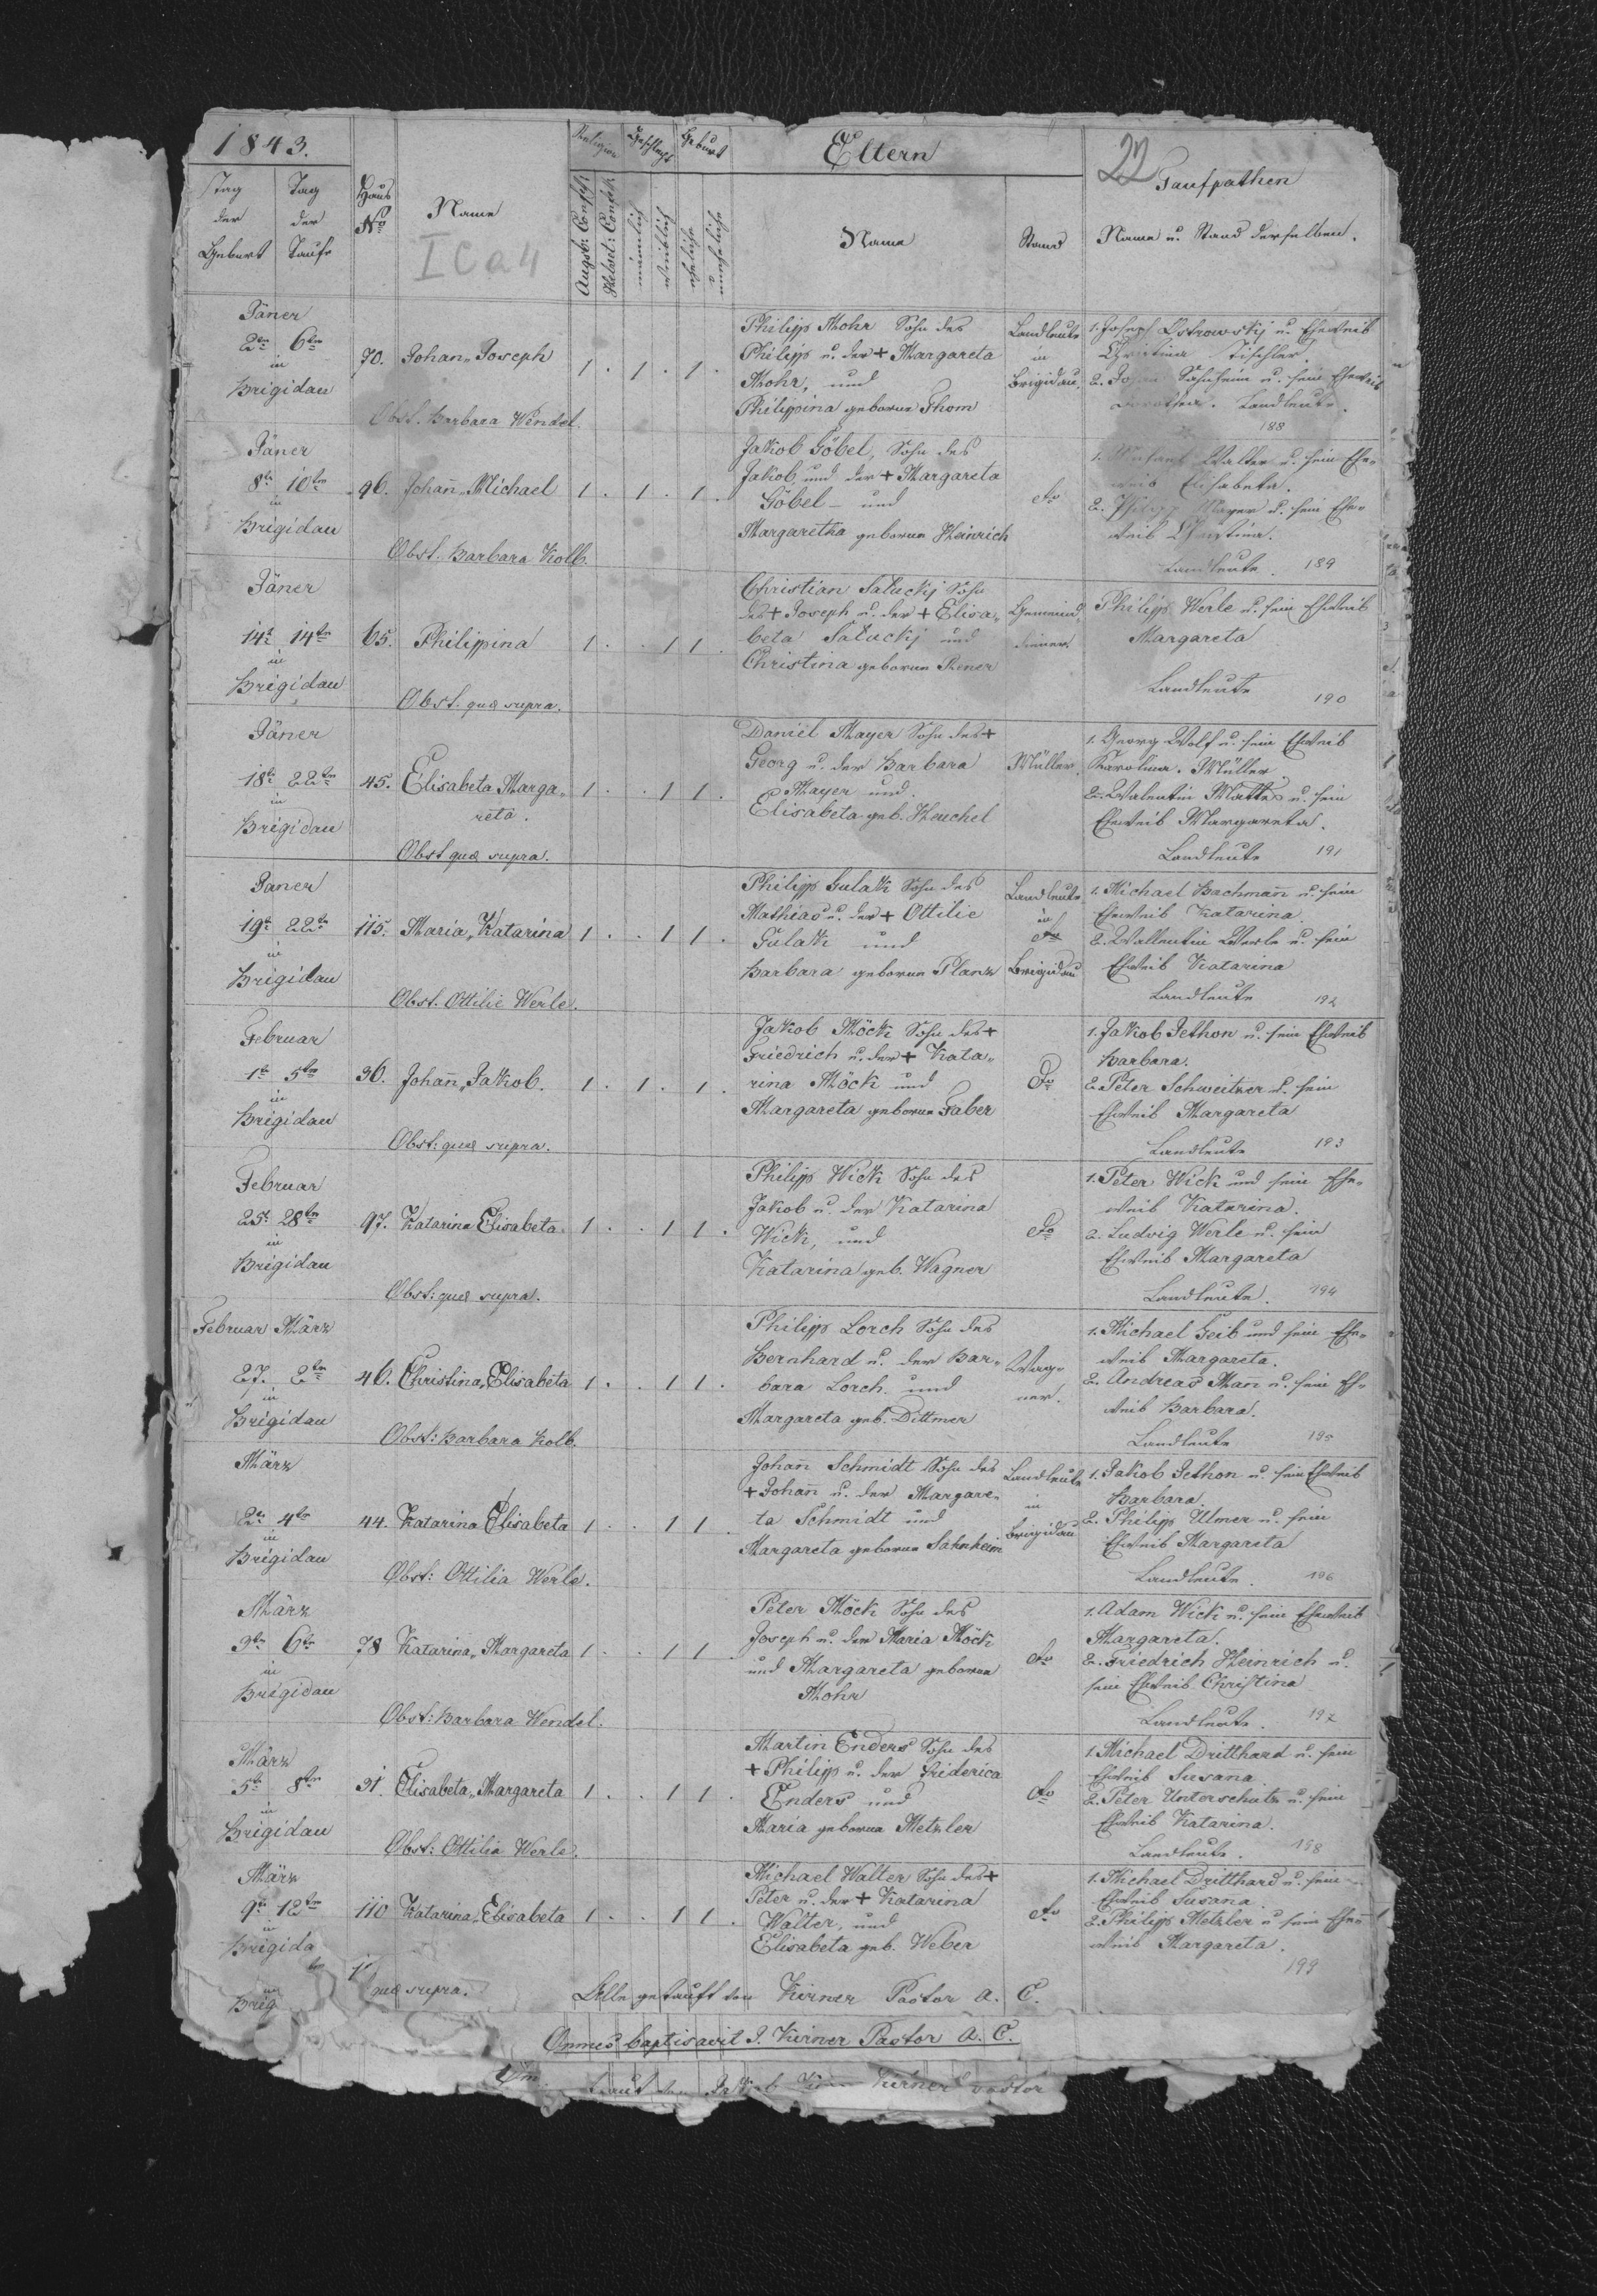 1843.
22
Religion Geschlecht Geburt
Eltern
Taufpathen
Tag der Geburt
Tag der Taufe
Haus No
Name
I C a 4
Augsb: Confess:
Helvet: Confess:
männlich
weiblich
eheliche
uneheliche
Name
Stand
Name u. Stand derselben.
Jäner
2ten 6ten
in
Brigidau
70. Johan„ Joseph
1 . 1 . 1 .
Obst. Barbara Wendel.
Philipp Mohr Sohn des
Philipp u. der + Margareta
Mohr, und
Philippina geborne Thom
Landleute
in
Brigidau.
1. Joseph Ostrowskij u. Eheweib
Christina Tischler.
2. Sahnheim u. sein Eheweib
Dorothea. Landleute.
188
Jäner
8te 10ten
in
Brigidau
96. Johan̄„ Michael
1 . 1 . 1 .
Obst. Barbara Kolb.
Jakob Göbel, Sohn des
Jakob, und der + Margareta
Göbel – und
Margaretha geborne Heinrich
dto
1. Walter u. sein Ehe-
weib Elisabeta.
2. Philipp Mayer u. sein Ehe-
weib Christina.
Landleute. 189
Jäner
14t 14ten
in
Brigidau
65. Philippina
1 . . 1 1 .
Obst. quæ supra.
Christian Saluckij Sohn
des + Joseph u. der + Elisa-
beta Saluckij und
Christina geborne Rener
Gemeind
diener.
Philipp Werle u. sein Eheweib
Margareta
Landleute
190
Jäner
18te 22ten
in
Brigidau
45. Elisabeta Marga-
reta.
1 . . 1 1 .
Obst quæ supra.
Daniel Mayer Sohn des +
Georg u. der Barbara
Mayer und
Elisabeta geb. Heuchel
Müller.
1. Georg Wolf u. sein Eheweib
Karolina. Müller.
2. Valentin Matthes u. sein
Eheweib Margareta.
Landleute 191
Jäner
19t 22ten
in
Brigidau
115. Maria„ Katarina
1 . . 1 1 .
Obst. Ottilie Werle.
Philipp Gulak Sohn des
Mathias u. der + Ottilie
Gulak und
Barbara geborne Planz
Landleute
in
dto
Brigidau
1. Michael Bachman̄ u. sein
Eheweib Katarina.
2. Wallentin Werle u. sein
Eheweib Katarina
Landleute 192
Februar
1t 5ten
in
Brigidau
36. Johan̄„ Jakob.
1 . 1 . 1 .
Obst: quæ supra.
Jakob Möck Sohn des +
Friedrich u. der + Kata-
rina Möck und
Margareta geborne Faber
dto
1. Jakob Jethon u. sein Eheweib
Barbara.
2. Peter Schweitzer u. sein
Eheweib Margareta
Landleute 193
Februar
25t 28ten
in
Brigidau
97. Katarina Elisabeta
1 . . 1 1 .
Obst: quæ supra.
Philipp Wick Sohn des
Jakob u. der Katarina
Wick, und
Katarina geb. Wagner
dto
1. Peter Wick und sein Ehe-
weib Katarina.
2. Ludwig Werle u. sein
Eheweib Margareta
Landleute. 194
Februar März
27. 2ten
in
Brigidau
46. Christina„ Elisabeta
1 . . 1 1 .
Obst: Barbara Kolb.
Philipp Lorch Sohn des
Bernhard u. der Bar-
bara Lorch und
Margareta geb. Dittmer
Wag-
ner.
1. Michael Geib und sein Ehe-
weib Margareta.
2. Andreas Man̄ u. sein Eh-
weib Barbara.
Landleute 195
März
2te 4ten
in
Brigidau
44. Katarina Elisabeta
1 . . 1 1 .
Obst: Ottilia Werle.
Johan̄ Schmidt Sohn des
+ Johan̄ u. der Margare-
ta Schmidt und
Margareta geborne Sahnheim
Landleute
in
Brigidau
1. Jakob Jethon u. sein Eheweib
Barbara.
2. Philipp Ulmer u. sein
Eheweib Margareta
Landleute. 196
März
3ten 6te
in
Brigidau
78 Katarina„ Margareta
1 . . 1 1 .
Obst: Barbara Wendel.
Peter Möck Sohn des
Joseph u. der Maria Möck
und Margareta geborne
Mohr
dto
1. Adam Wick u. sein Eheweib
Margareta.
2. Friedrich Heinrich u.
sein Eheweib Christina
Landleute. 197
März
5te 8ten
in
Brigidau
31. Elisabeta„ Margareta
1 . . 1 1 .
Obst: Ottilia Werle.
Martin Enders Sohn des
+ Philipp u. der Friderica
Enders und
Maria geborne Metzler
dto
1. Michael Dritthard u. sein
Eheweib Susana.
2. Peter Unterschutz u. sein
Eheweib Katarina.
Landleute. 198
März
9te 12ten
in
Brigida
110 Katarina„ Elisabeta
1 . . 1 1 .
quæ supra.
Michael Walter Sohn des +
Peter u. der + Katarina
Walter, und
Elisabeta geb. Weber
dto
1. Michael Dritthard u. sein
Eheweib Susana.
2. Philipp Metzler u sein Ehe-
weib Margareta.
199
Brig
Alle getauft von Kirner Pastor A. C.
Omnes baptisavit J. Kirner Pastor A. C.
Jakob Kirner pastor